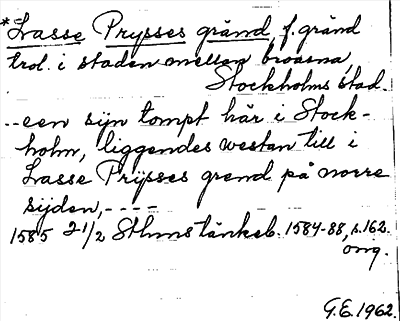 *Lasse Prysses gränd, f. gränd
trol. i staden mellan broarna,
Stockholms stad.
--een sijn tompt här i Stock-
holm, liggendes westan till i
Lasse Prijsses grend på norre
sijden,----
1585 2-1/2 Sthmstänkeb. 1584-88, s.162.
orig.
G.E.1962.